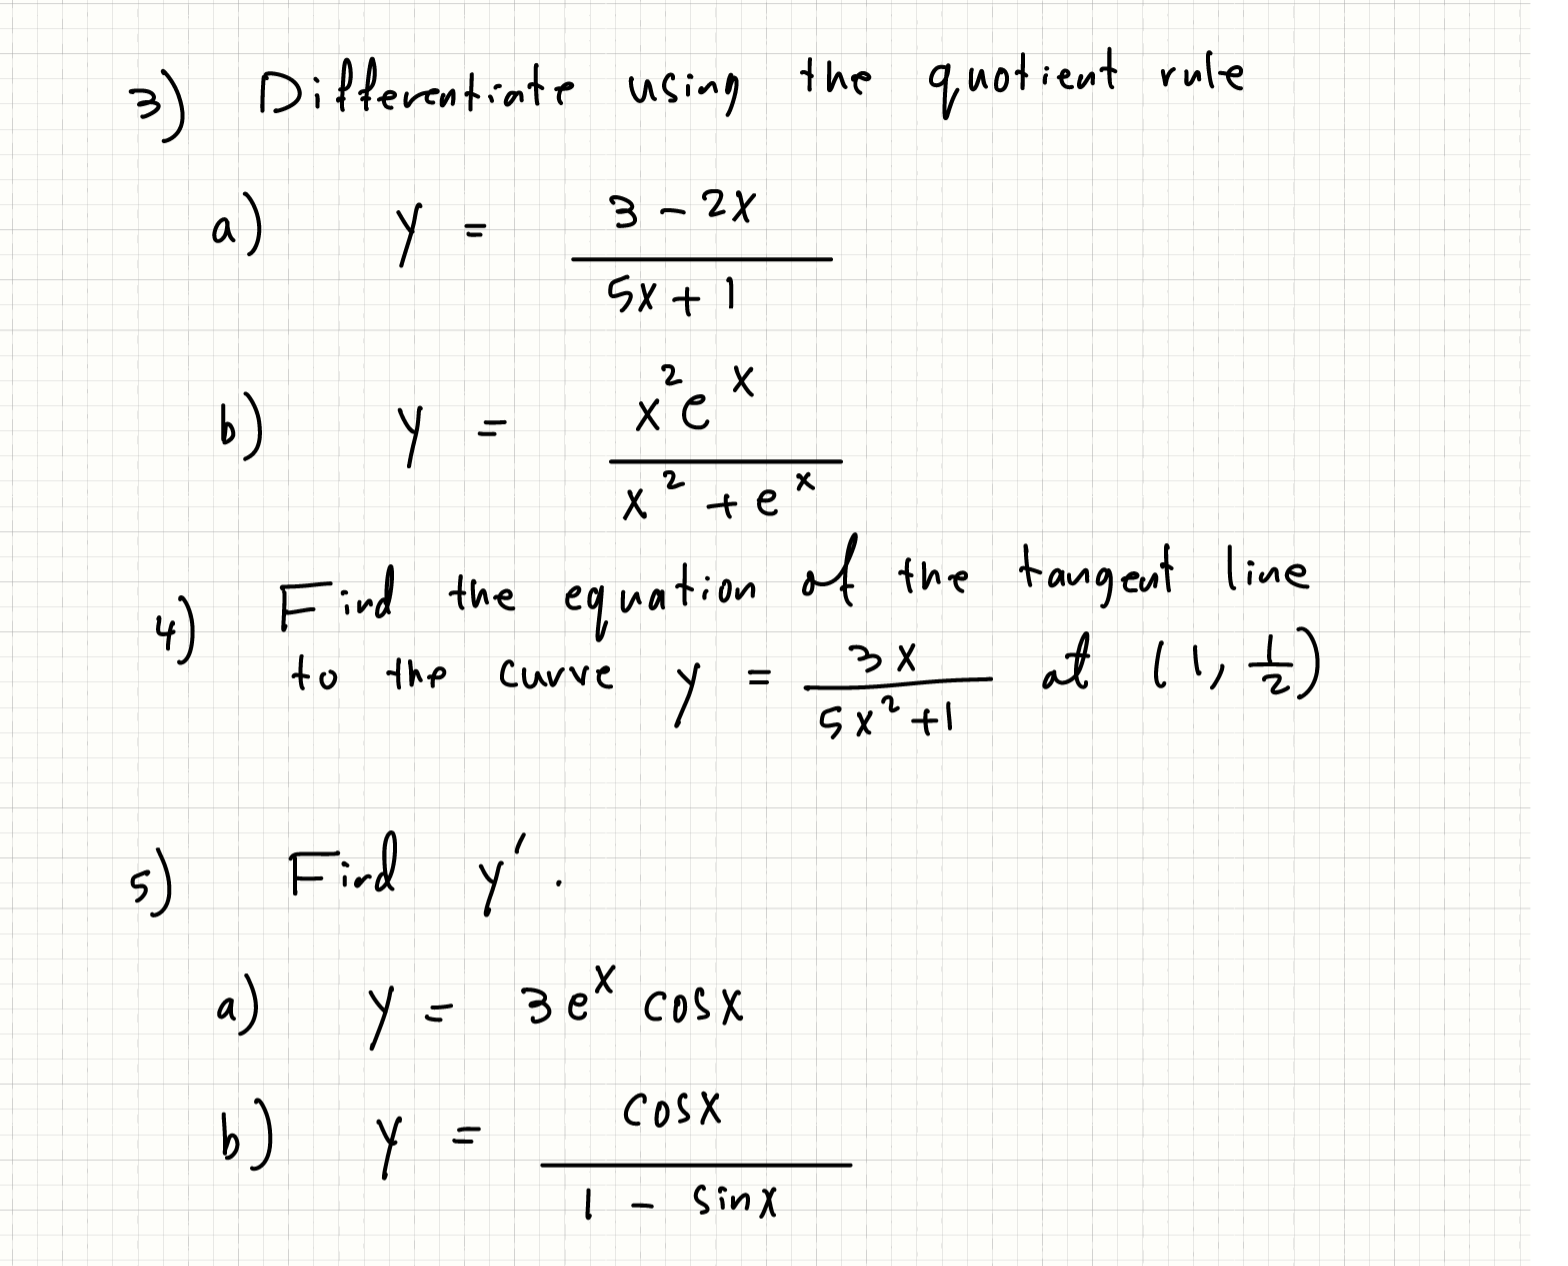 3) Differentiate using the quotient rule
a) y = (3 - 2x)/(5x + 1)
b) y = (x²eˣ)/(x² + eˣ)
4) Find the equation of the tangent line
to the curve y = 3x/(5x² + 1) at (1, 1/2)
5) Find y'.
a) y = 3eˣ cosx
b) y = cosx/(1 - sinx)